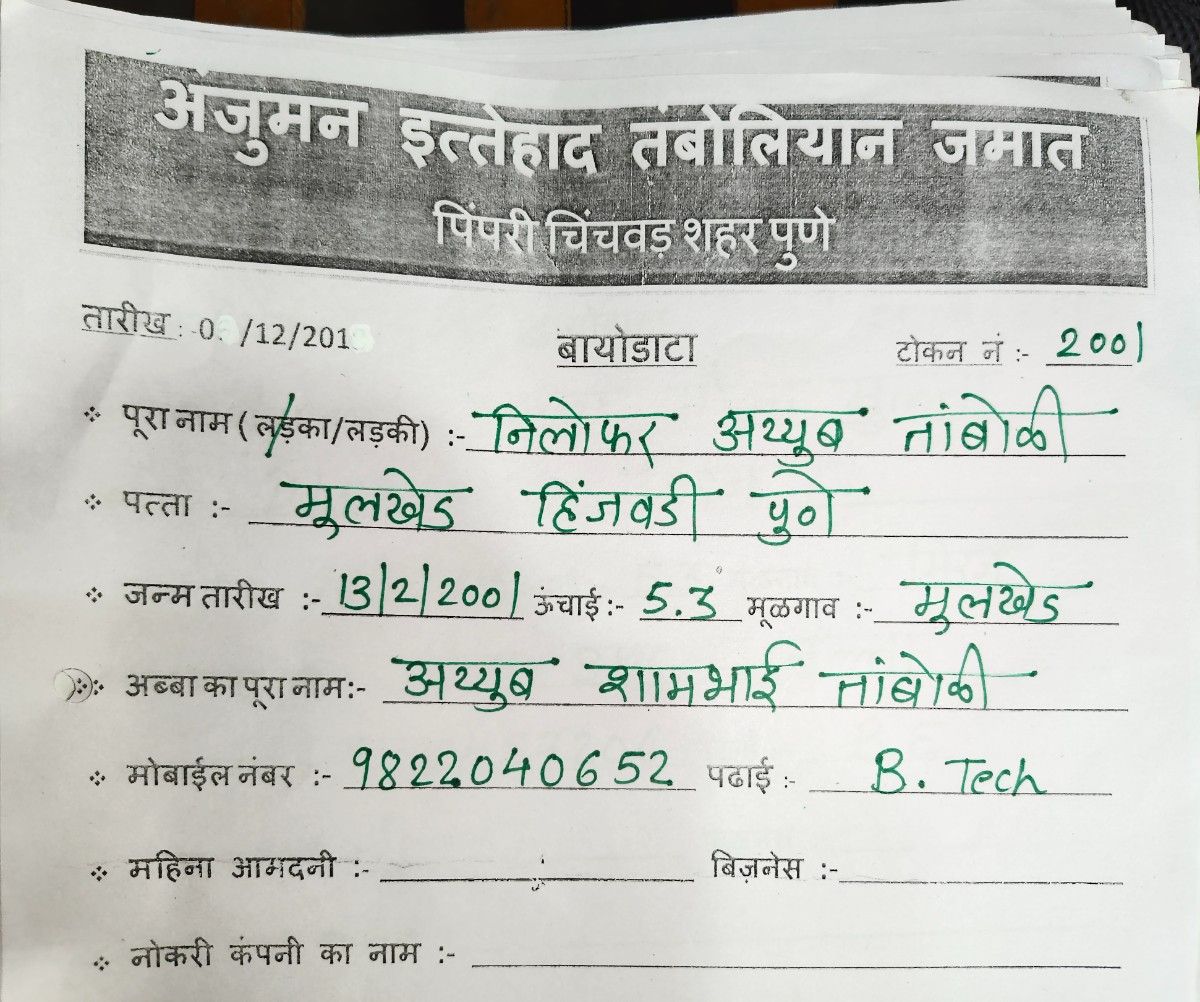 अंजुमन इत्तेहाद तंबोलियान जमात
पिंपरी चिंचवड़ शहर पुणे
तारीख : -0 /12/201
बायोडाटा टोकन नं :- 2001
पूरा नाम ( लड़का/लड़की) :- निलोफर अय्युब तांबोळी
पत्ता :- मूलखेड हिंजवडी पुणे
जन्म तारीख :- 13/2/2001 ऊंचाई:- 5.3 मूळगाव :- मूलखेड
अब्बा का पूरा नाम:- अय्युब शामभाई तांबोळी
मोबाईल नंबर :- 9822040652 पढाई :- B. Tech
महिना आमदनी :- बिज़नेस :-
नोकरी कंपनी का नाम :-